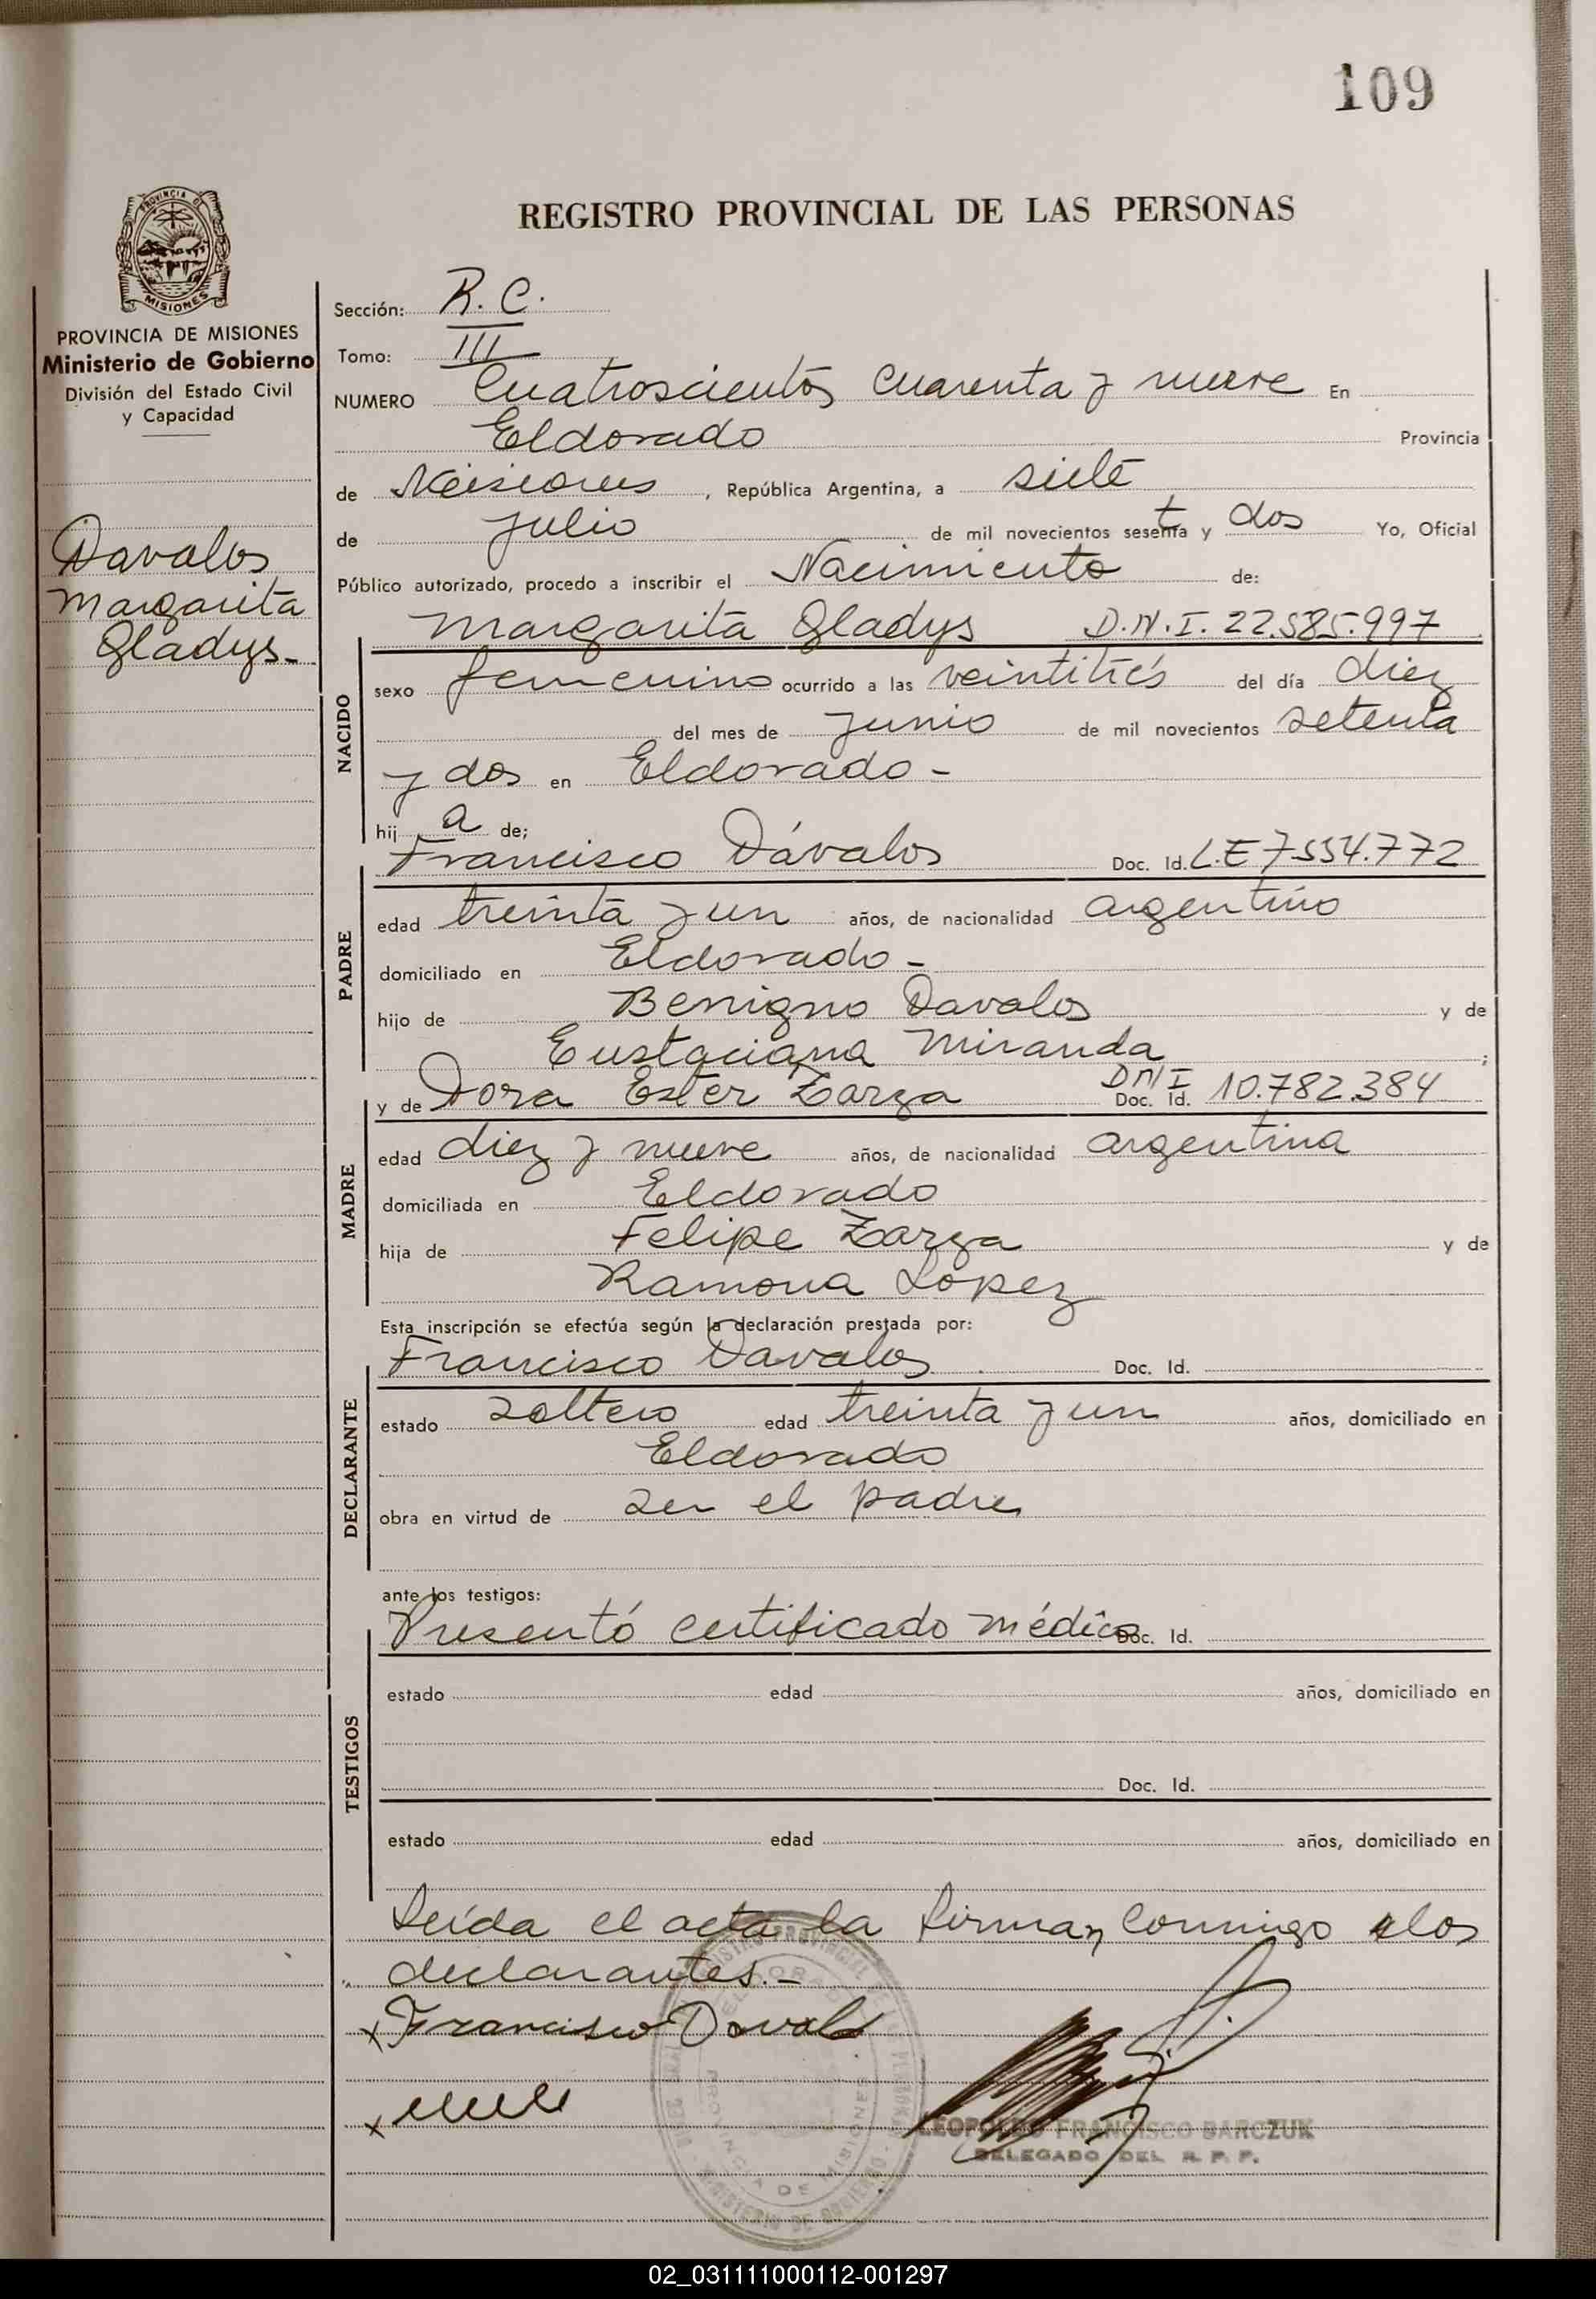 109
PROVINCIA DE
MISIONES
PROVINCIA DE MISIONES
Ministerio de Gobierno
División del Estado Civil
y Capacidad
Davalos
Margarita
Gladys-
REGISTRO PROVINCIAL DE LAS PERSONAS
Sección: R. C.
Tomo: III
NUMERO Cuatroscientos cuarenta y nueve En
Eldorado Provincia
de Misiones, República Argentina, a siete
de Julio de mil novecientos setenta y dos Yo, Oficial
Público autorizado, procedo a inscribir el Nacimiento de:
Margarita Gladys D.N.I. 22.585.997
NACIDO
sexo femenino ocurrido a las veintitrés del día diez
del mes de Junio de mil novecientos setenta
y dos en Eldorado -
hij a de;
Francisco Dávalos Doc. Id. L.E 7554.772
PADRE
edad treinta y un años, de nacionalidad argentino
domiciliado en Eldorado -
hijo de Benigno Davalos y de
Eustaciana Miranda ;
y de Dora Ester Zarza DNI Doc. Id. 10.782.384
MADRE
edad diez y nueve años, de nacionalidad argentina
domiciliada en Eldorado
hija de Felipe Zarza y de
Ramona López
Esta inscripción se efectúa según la declaración prestada por:
Francisco Davalos Doc. Id.
DECLARANTE
estado soltero edad treinta y un años, domiciliado en
Eldorado
obra en virtud de ser el padre
ante los testigos:
Presentó certificado médico Doc. Id.
TESTIGOS
estado edad años, domiciliado en
Doc. Id.
estado edad años, domiciliado en
Leída el acta la firman conmigo los
declarantes.-
x Francisco Davalo
x
LEOPOLDO FRANCISCO BARCZUK
DELEGADO DEL R. P. P.
PROVINCIA DE MISIONES
02_031111000112-001297